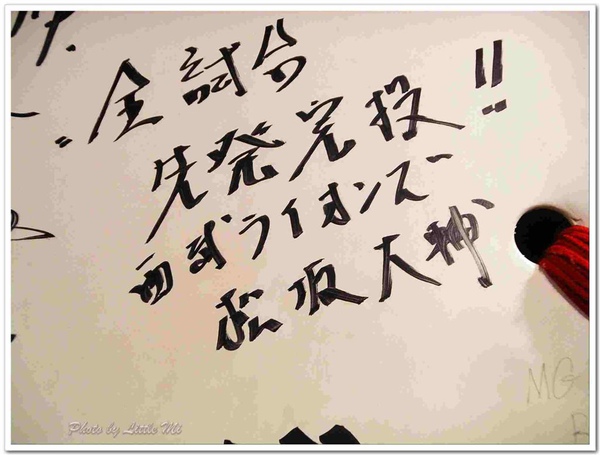 全試合
先発完投!!
西武ライオンズ
松坂大神
MG
Photo by Little Mi